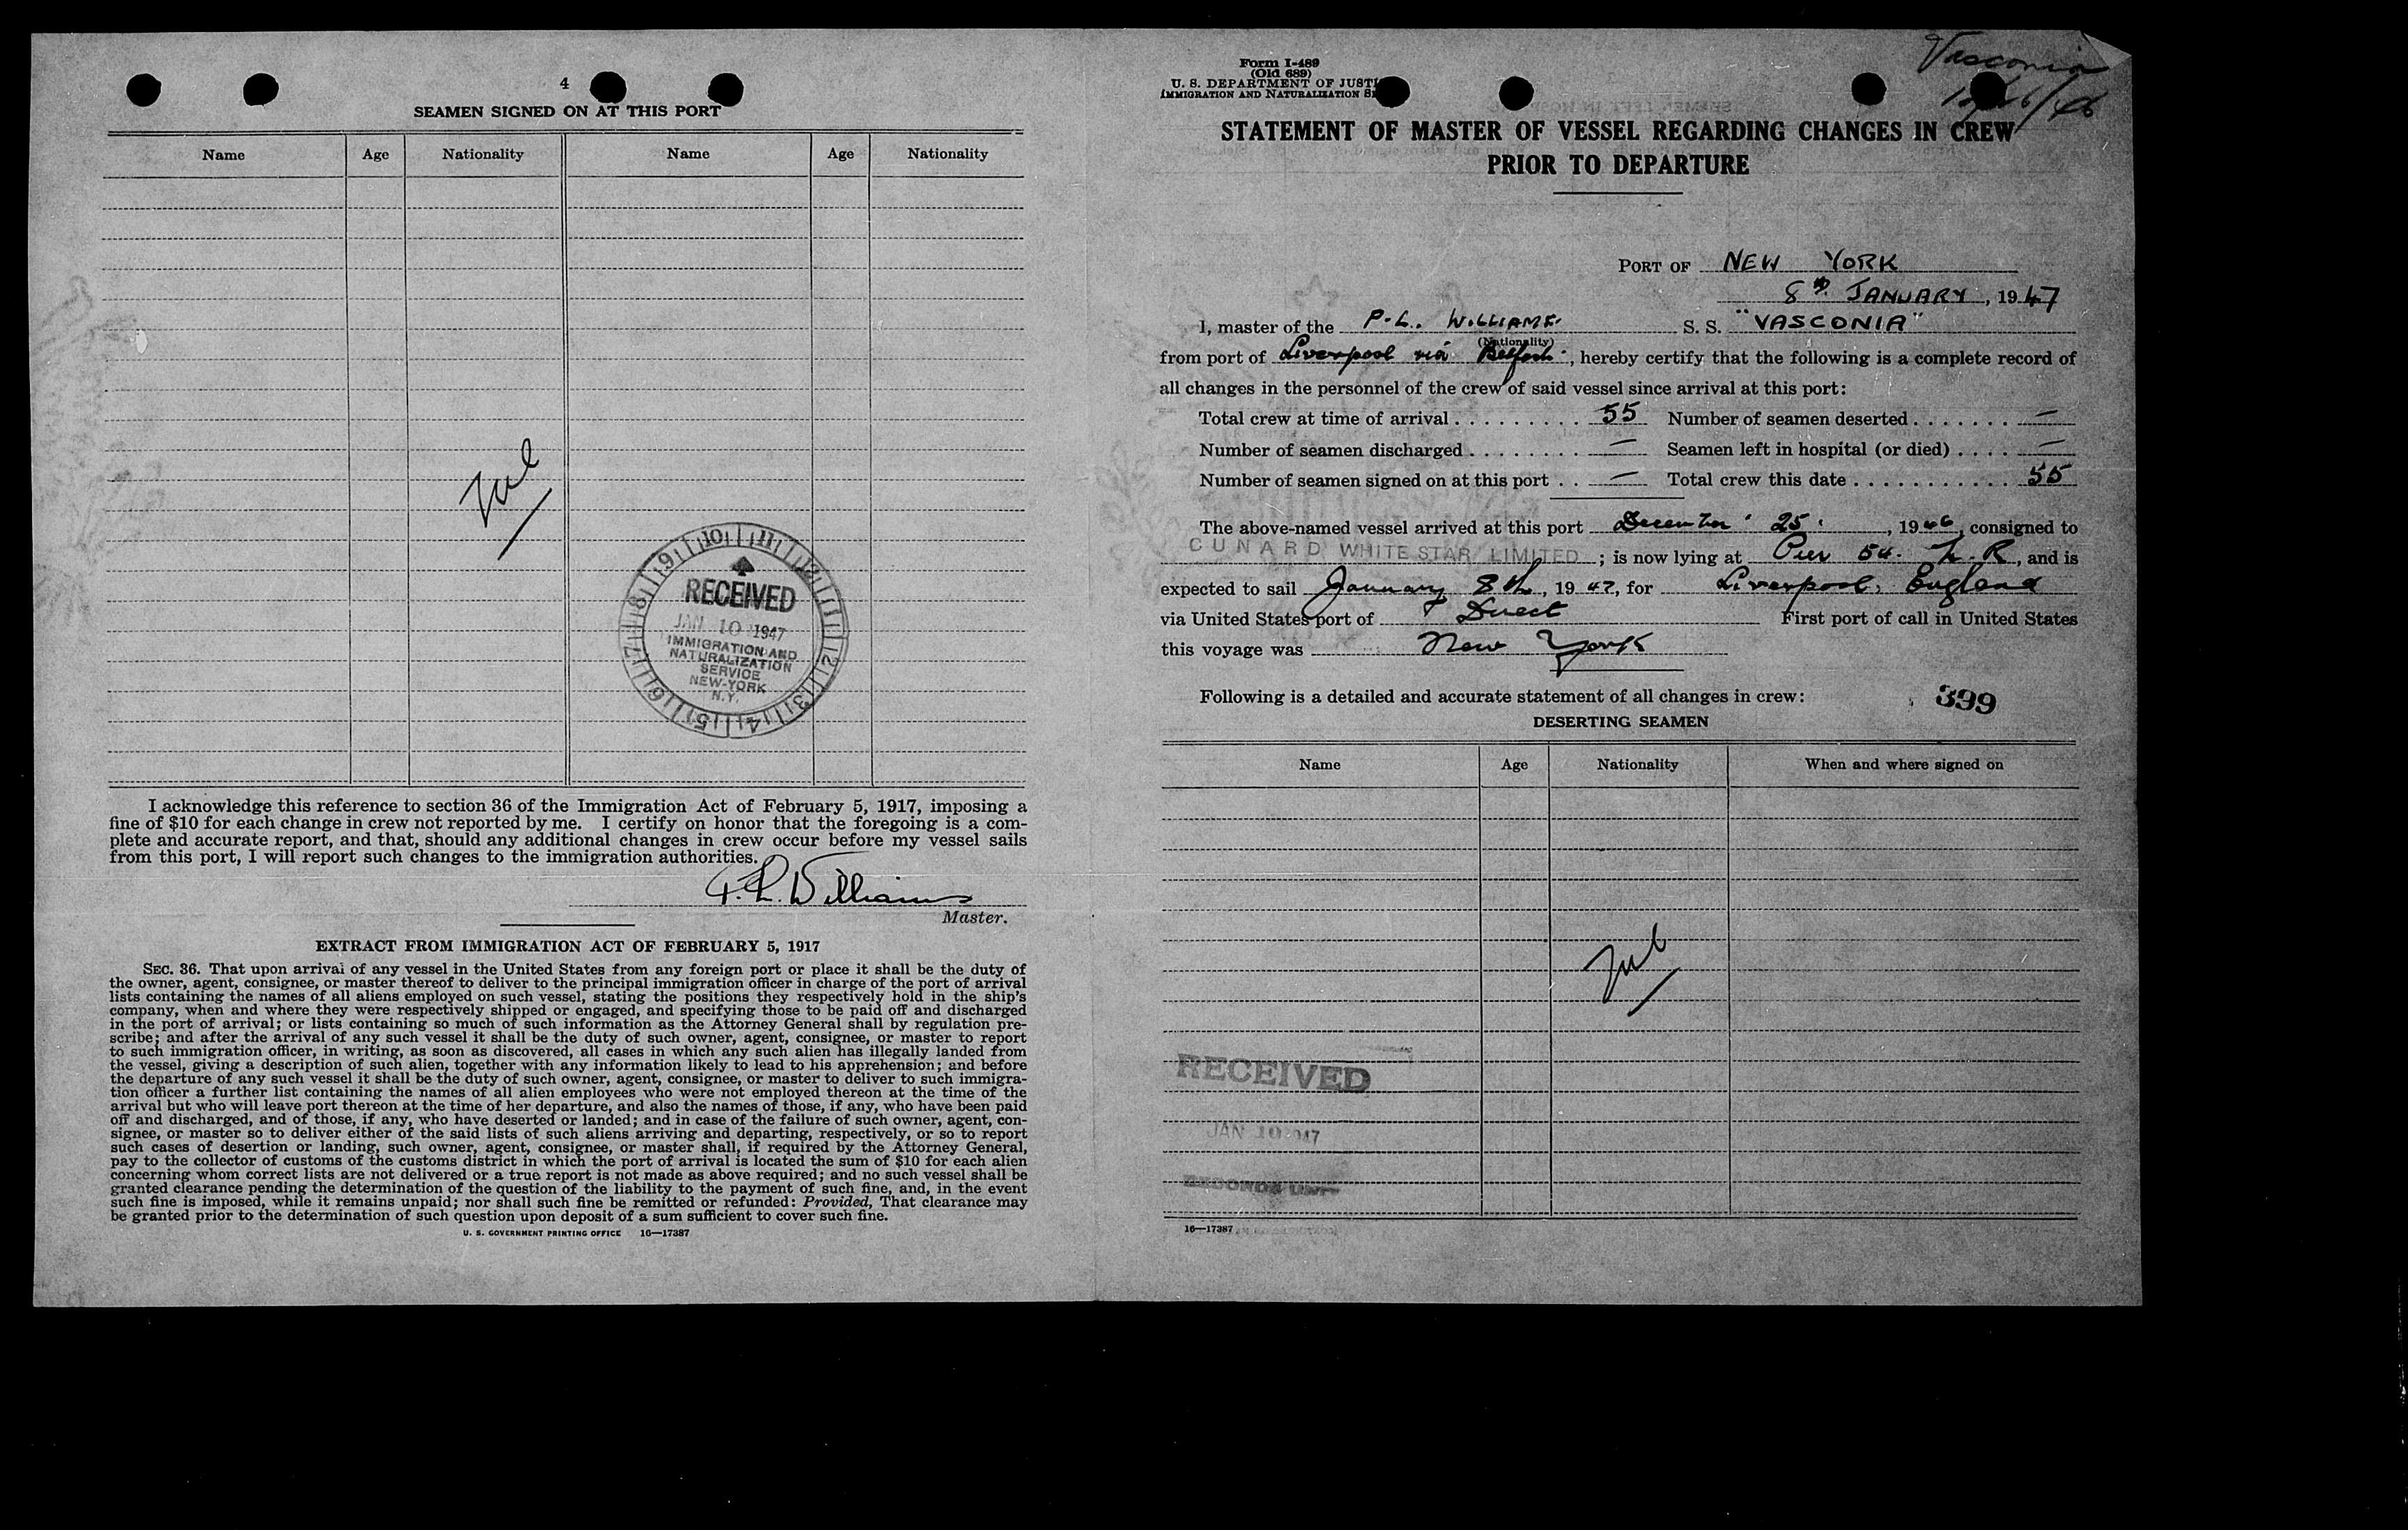 4
SEAMEN SIGNED ON AT THIS PORT
Name Age Nationality Name Age Nationality
Nil
10 11 12 1 2 3 4 5 6 7 8 9
RECEIVED
JAN 10 1947
IMMIGRATION AND
NATURALIZATION
SERVICE
NEW-YORK
N.Y.
I acknowledge this reference to section 36 of the Immigration Act of February 5, 1917, imposing a
fine of $10 for each change in crew not reported by me. I certify on honor that the foregoing is a com-
plete and accurate report, and that, should any additional changes in crew occur before my vessel sails
from this port, I will report such changes to the immigration authorities.
P. L. Williams
Master.
EXTRACT FROM IMMIGRATION ACT OF FEBRUARY 5, 1917
SEC. 36. That upon arrival of any vessel in the United States from any foreign port or place it shall be the duty of
the owner, agent, consignee, or master thereof to deliver to the principal immigration officer in charge of the port of arrival
lists containing the names of all aliens employed on such vessel, stating the positions they respectively hold in the ship's
company, when and where they were respectively shipped or engaged, and specifying those to be paid off and discharged
in the port of arrival; or lists containing so much of such information as the Attorney General shall by regulation pre-
scribe; and after the arrival of any such vessel it shall be the duty of such owner, agent, consignee, or master to report
to such immigration officer, in writing, as soon as discovered, all cases in which any such alien has illegally landed from
the vessel, giving a description of such alien, together with any information likely to lead to his apprehension; and before
the departure of any such vessel it shall be the duty of such owner, agent, consignee, or master to deliver to such immigra-
tion officer a further list containing the names of all alien employees who were not employed thereon at the time of the
arrival but who will leave port thereon at the time of her departure, and also the names of those, if any, who have been paid
off and discharged, and of those, if any, who have deserted or landed; and in case of the failure of such owner, agent, con-
signee, or master so to deliver either of the said lists of such aliens arriving and departing, respectively, or so to report
such cases of desertion or landing, such owner, agent, consignee, or master shall, if required by the Attorney General,
pay to the collector of customs of the customs district in which the port of arrival is located the sum of $10 for each alien
concerning whom correct lists are not delivered or a true report is not made as above required; and no such vessel shall be
granted clearance pending the determination of the question of the liability to the payment of such fine, and, in the event
such fine is imposed, while it remains unpaid; nor shall such fine be remitted or refunded: Provided, That clearance may
be granted prior to the determination of such question upon deposit of a sum sufficient to cover such fine.
U. S. GOVERNMENT PRINTING OFFICE 16—17387
Form I-489
(Old 689)
U. S. DEPARTMENT OF JUSTI
IMMIGRATION AND NATURALIZATION S
Vasconia
STATEMENT OF MASTER OF VESSEL REGARDING CHANGES IN CREW
PRIOR TO DEPARTURE
PORT OF NEW YORK
8th. JANUARY, 1947
I, master of the P. L. WILLIAMS. S. S. "VASCONIA"
(Nationality)
from port of Liverpool via Belfast, hereby certify that the following is a complete record of
all changes in the personnel of the crew of said vessel since arrival at this port:
Total crew at time of arrival . . . . . . . . . 55 Number of seamen deserted . . . . . . . —
Number of seamen discharged . . . . . . . . — Seamen left in hospital (or died) . . . . —
Number of seamen signed on at this port . . — Total crew this date . . . . . . . . . . . 55
The above-named vessel arrived at this port December 25, 1946, consigned to
CUNARD WHITE STAR LIMITED; is now lying at Pier 54. N. R, and is
expected to sail January 8th, 1947, for Liverpool, England
via United States port of Direct First port of call in United States
this voyage was New York
Following is a detailed and accurate statement of all changes in crew:
399
DESERTING SEAMEN
Name Age Nationality When and where signed on
Nil
RECEIVED
JAN 10 1947
RECORDS UNIT
16—17387